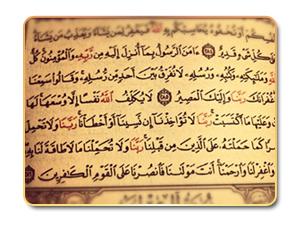 أَوْ تُخْفُوهُ يُحَاسِبْكُم بِهِ ٱللَّهُ فَيَغْفِرُ لِمَن يَشَآءُ وَيُعَذِّبُ مَن يَشَآءُ
كُلِّ شَىْءٍ قَدِيرٌ ٢٨٤ ءَامَنَ ٱلرَّسُولُ بِمَآ أُنزِلَ إِلَيْهِ مِن رَّبِّهِۦ وَٱلْمُؤْمِنُونَ كُلٌّ
وَمَلَٰٓئِكَتِهِۦ وَكُتُبِهِۦ وَرُسُلِهِۦ لَا نُفَرِّقُ بَيْنَ أَحَدٍ مِّن رُّسُلِهِۦ وَقَالُوا۟ سَمِعْنَا
غُفْرَانَكَ رَبَّنَا وَإِلَيْكَ ٱلْمَصِيرُ ٢٨٥ لَا يُكَلِّفُ ٱللَّهُ نَفْسًا إِلَّا وُسْعَهَا لَهَا
وَعَلَيْهَا مَا ٱكْتَسَبَتْ رَبَّنَا لَا تُؤَاخِذْنَآ إِن نَّسِينَآ أَوْ أَخْطَأْنَا رَبَّنَا وَلَا تَحْمِلْ
كَمَا حَمَلْتَهُۥ عَلَى ٱلَّذِينَ مِن قَبْلِنَا رَبَّنَا وَلَا تُحَمِّلْنَا مَا لَا طَاقَةَ لَنَا بِهِۦ
وَٱغْفِرْ لَنَا وَٱرْحَمْنَآ أَنتَ مَوْلَىٰنَا فَٱنصُرْنَا عَلَى ٱلْقَوْمِ ٱلْكَٰفِرِينَ